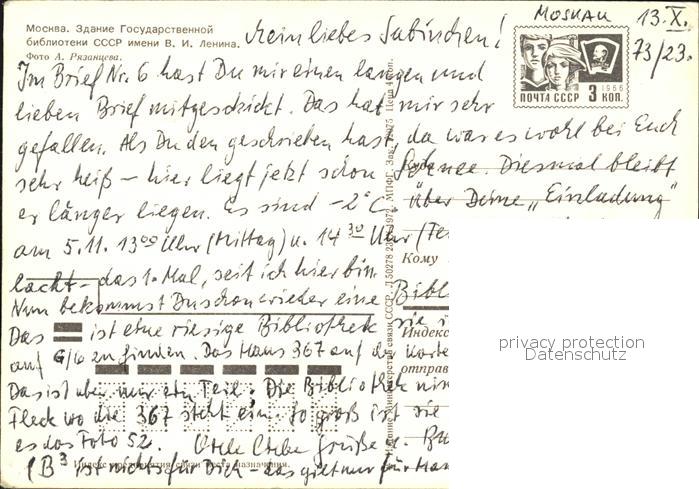 Москва. Здание Государственной
библиотеки СССР имени В. И. Ленина.
Фото А. Рязанцева.
Mein liebes Sabinchen!
MOSKAU 13. X.
73/23.
1966
ПОЧТА СССР 3 КОП.
Im Brief Nr. 6 hast Du mir einen langen und
lieben Brief mitgeschickt. Das hat mir sehr
gefallen. Als Du den geschrieben hast, da war es wohl bei Euch
sehr heiß – hier liegt jetzt schon Schnee. Diesmal bleibt
er länger liegen. Es sind -2°C. über Deine „Einladung"
am 5.11. 13⁰⁰ Uhr (Mittag) u. 14 30 Uhr
lacht – das 1. Mal, seit ich hier bin.
Кому
Nun bekommst Du schon wieder eine Bibl
Das ist eine riesige Bibliothek sie
Индекс
auf G/6 zu finden. Das Haus 367 auf der Karte
отправ
Das ist aber nur ein Teil. Die Bibliothek nim
Fleck wo die 367 steht ein. So groß ist sie
es das Foto 52. Grüße u.
Индекс предприятия связи места назначения.
(B³ ist nichts für Dich – das gilt nur für
Министерства связи СССР.
privacy protection
Datenschutz